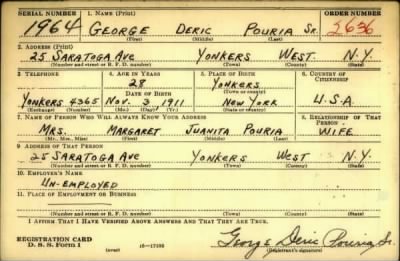 SERIAL NUMBER 1. NAME (Print) ORDER NUMBER
1964 GEORGE DERIC POURIA SR. 2636
(First) (Middle) (Last)
2. ADDRESS (Print)
25 SARATOGA AVE YONKERS WEST. N.Y.
(Number and street or R. F. D. number) (Town) (County) (State)
3. TELEPHONE 4. AGE IN YEARS 5. PLACE OF BIRTH 6. COUNTRY OF CITIZENSHIP
28 YONKERS
DATE OF BIRTH (Town or county)
YONKERS 4365 NOV. 3 1911 NEW YORK U.S.A
(Exchange) (Number) (Mo.) (Day) (Yr.) (State or country)
7. NAME OF PERSON WHO WILL ALWAYS KNOW YOUR ADDRESS 8. RELATIONSHIP OF THAT PERSON
MRS. MARGARET JUANITA POURIA WIFE
(Mr., Mrs., Miss) (First) (Middle) (Last)
9. ADDRESS OF THAT PERSON
25 SARATOGA AVE YONKERS WEST N.Y.
(Number and street or R. F. D. number) (Town) (County) (State)
10. EMPLOYER'S NAME
UN-EMPLOYED
11. PLACE OF EMPLOYMENT OR BUSINESS
(Number and street or R. F. D. number) (Town) (County) (State)
I AFFIRM THAT I HAVE VERIFIED ABOVE ANSWERS AND THAT THEY ARE TRUE.
REGISTRATION CARD George Deric Pouria Sr.
D. S. S. FORM 1 (over) (Registrant's signature)